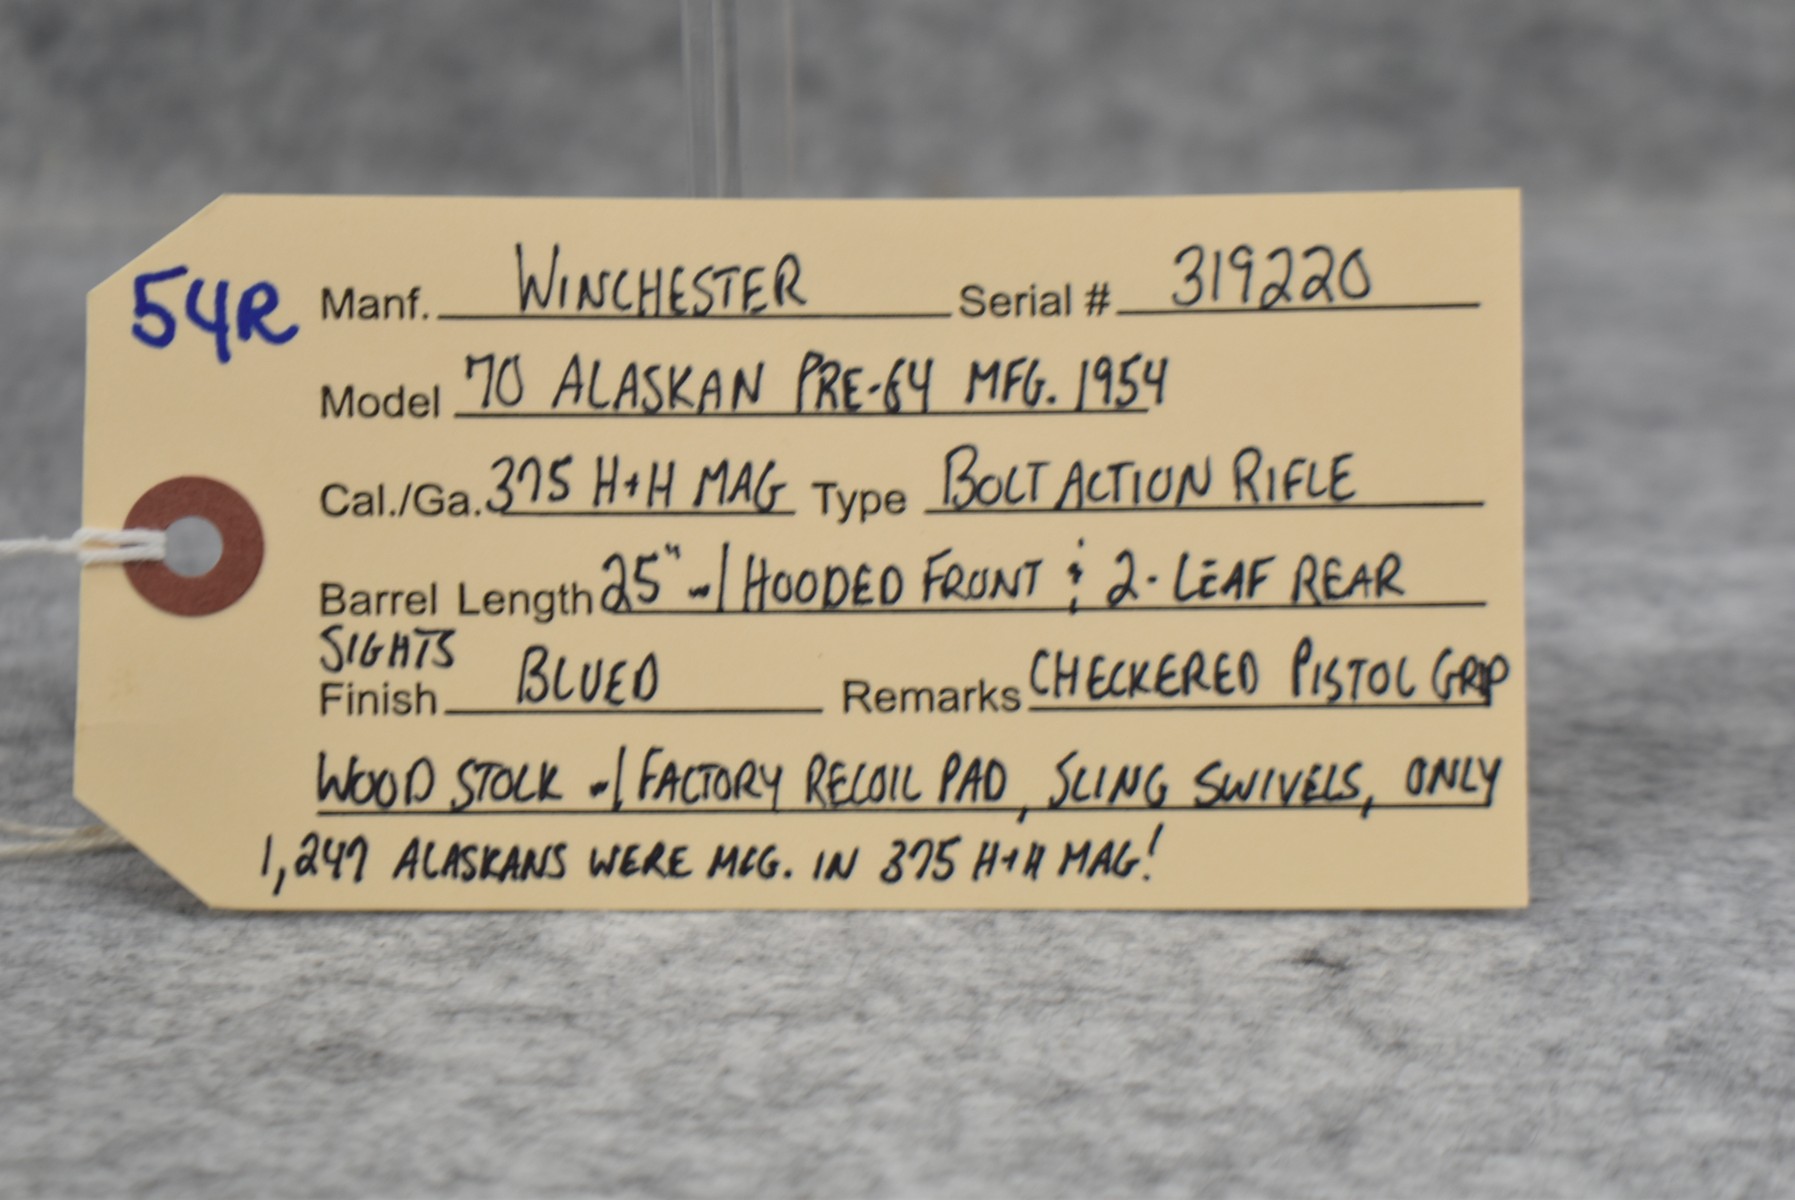 54R
Manf. WINCHESTER Serial # 319220
Model 70 ALASKAN PRE-64 MFG. 1954
Cal./Ga. 375 H+H MAG Type BOLT ACTION RIFLE
Barrel Length 25" w/ HOODED FRONT & 2-LEAF REAR
SIGHTS
Finish BLUED Remarks CHECKERED PISTOL GRIP
WOOD STOCK w/ FACTORY RECOIL PAD, SLING SWIVELS, ONLY
1,247 ALASKANS WERE MFG. IN 375 H+H MAG!